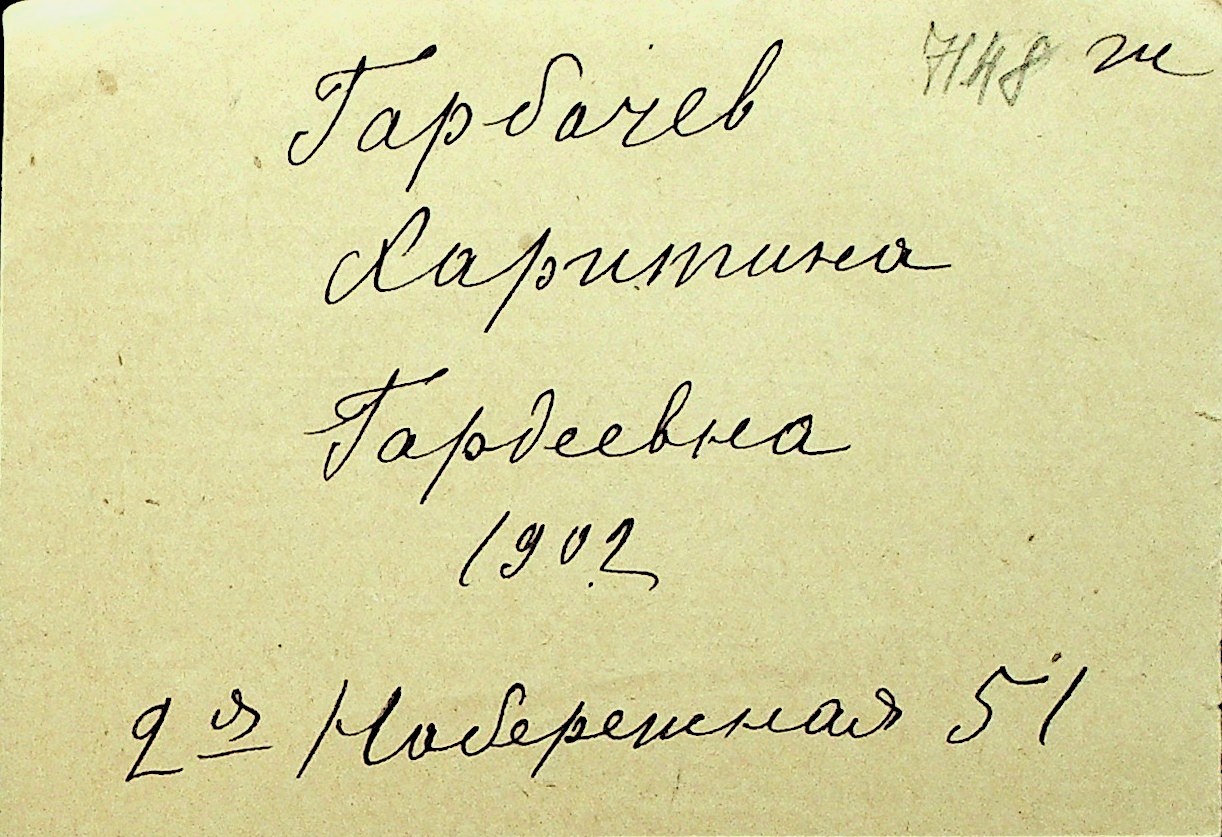 7148 ж
Гарбачев
Харитина
Гардеевна
1902
2я Набережная 51